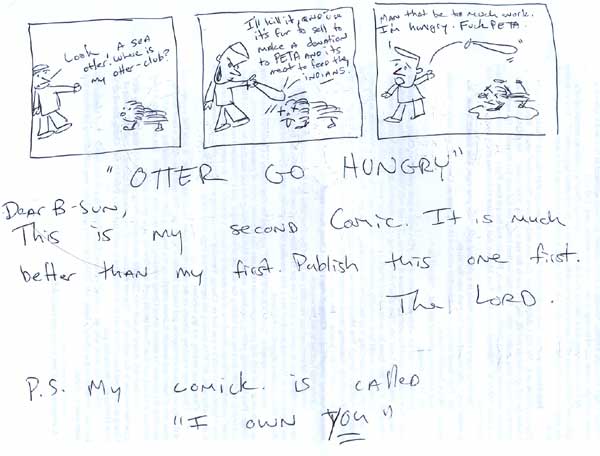 Look, A SEA
otter. where is
my otter-club?
I'll kill it, AND use
it's fur to sell to
make a donation
to PETA AND its
meat to feed the
INDIANS.
MAN that be to much work.
I'm hungry. Fuck PETA.
"OTTER GO HUNGRY"
Dear B-Sun,
This is my second Comic. It is much
better than my first. Publish this one first.
The LORD.
P.S. My comick is called
"I OWN YOU"